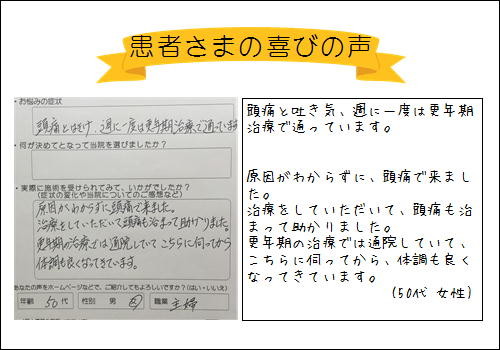 患者さまの喜びの声
・お悩みの症状
頭痛とはきけ、週に一度は更年期治療で通っています
・何が決めてとなって当院を選びましたか?
・実際に施術を受けられてみて、いかがでしたか?
(症状の変化や当院についてのご感想など)
原因がわからずに頭痛で来ました。
治療をしていただいて頭痛も治まって助かりました。
更年期の治療では通院していてこちらに伺ってから
体調も良くなってきています。
あなたの声をホームページなどで、ご紹介してもよろしいですか?(はい・いいえ)
年齢 50代 性別 男 女 職業 主婦
頭痛と吐き気、週に一度は更年期
治療で通っています。
原因がわからずに、頭痛で来まし
た。
治療をしていただいて、頭痛も治
まって助かりました。
更年期の治療では通院していて、
こちらに伺ってから、体調も良く
なってきています。
(50代 女性)